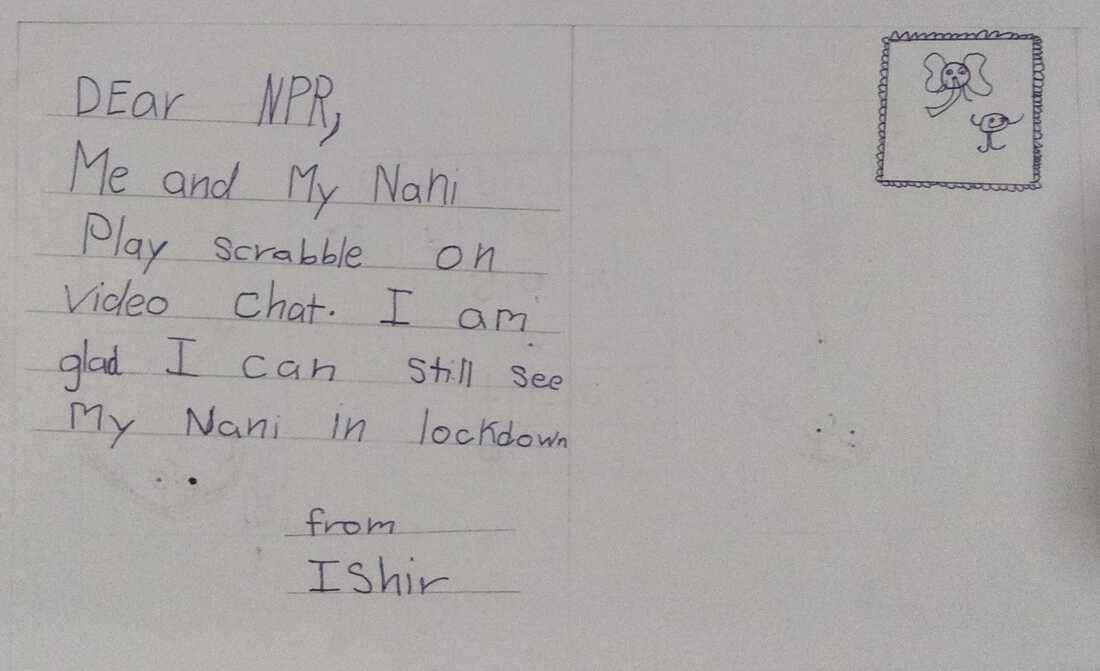 DEar NPR,
Me and My Nani
Play scrabble on
video chat. I am
glad I can still see
My Nani in lockdown
from
IShir